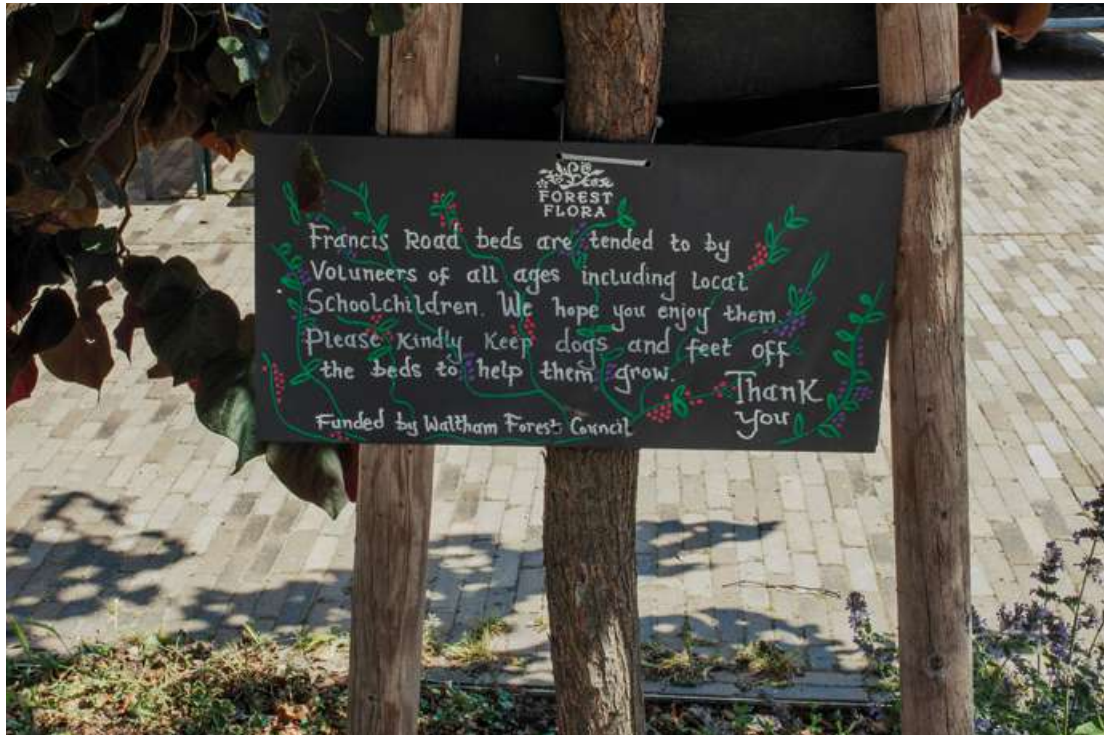 FOREST
FLORA
Francis Road beds are tended to by
Voluneers of all ages including Local
Schoolchildren. We hope you enjoy them.
Please kindly Keep dogs and feet off
the beds to help them grow.
Thank
you
Funded by Waltham Forest Council